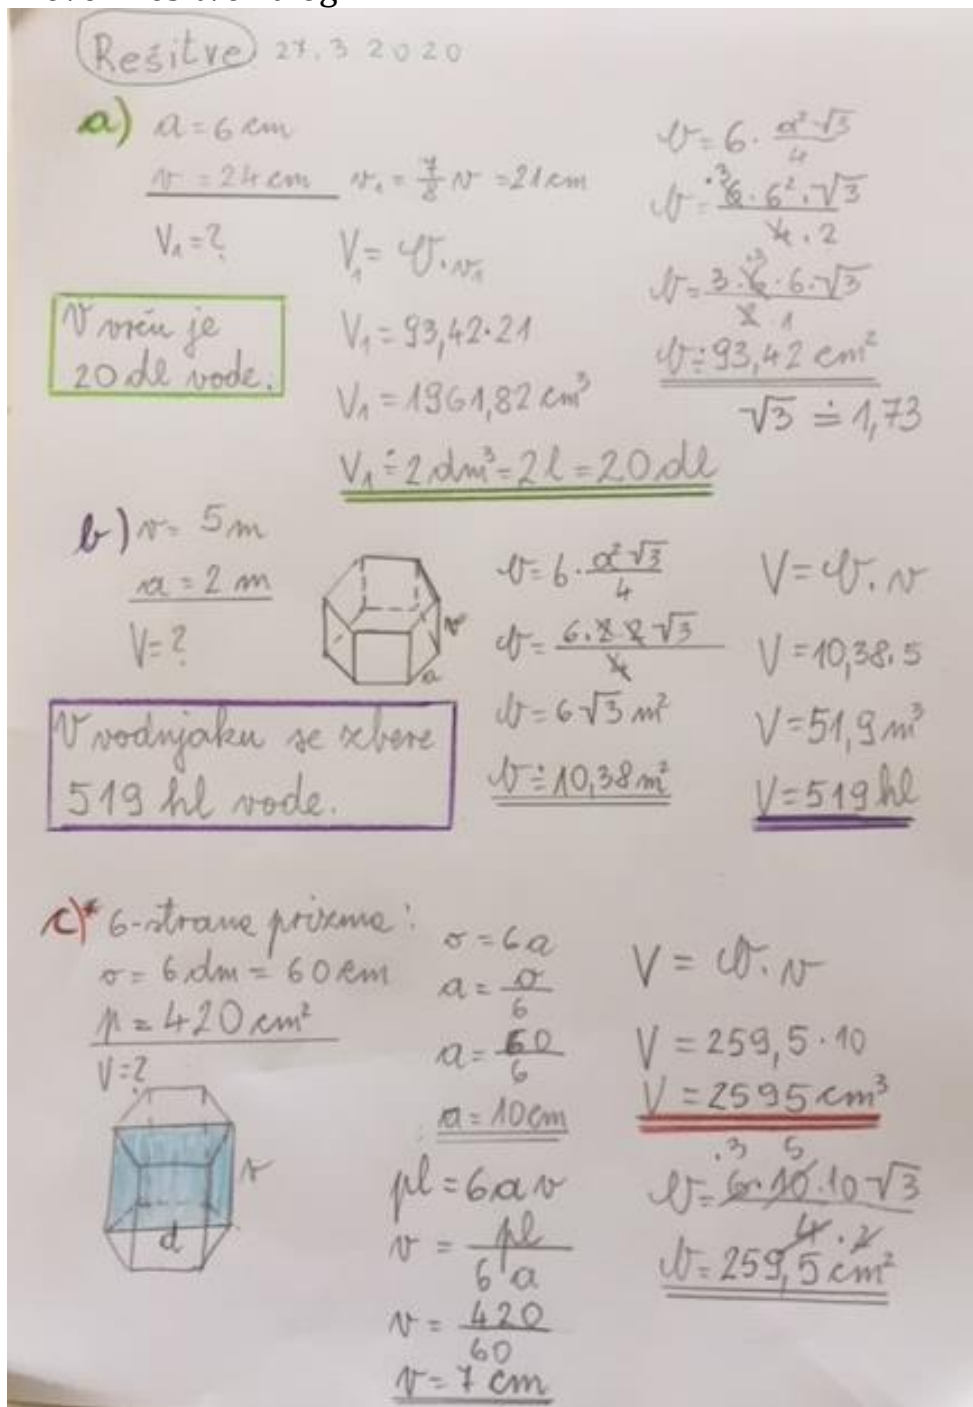 Rešitve 27.3 2020
a) a = 6 cm
v = 24 cm
V₁ = ?
V vrču je
20 dl vode.
v₁ = 7/8 v = 21 cm
V₁ = O · v₁
V₁ = 93,42 · 21
V₁ = 1961,82 cm³
V₁ ≐ 2 dm³ = 2 l = 20 dl
O = 6 · a²√3/4
O = 6 · 6² · √3 / 4 · 2
O = 3 · 6 · 6 · √3 / 2 1
O ≐ 93,42 cm²
√3 ≐ 1,73
b) v = 5 m
a = 2 m
V = ?
V vodnjaku se zbere
519 hl vode.
v
a
O = 6 · a²√3/4
O = 6 · 2 · 2 √3 / 4
O = 6√3 m²
O ≐ 10,38 m²
V = O · v
V = 10,38 · 5
V = 51,9 m³
V = 519 hl
c)* 6-strana prizma:
o = 6 dm = 60 cm
p = 420 cm²
V = ?
v
d
o = 6a
a = o/6
a = 60/6
a = 10 cm
pl = 6av
v = pl/6a
v = 420/60
v = 7 cm
V = O · v
V = 259,5 · 10
V = 2595 cm³
O = 6 · 10 · 10√3 / 4 · 2
O = 259,5 cm²